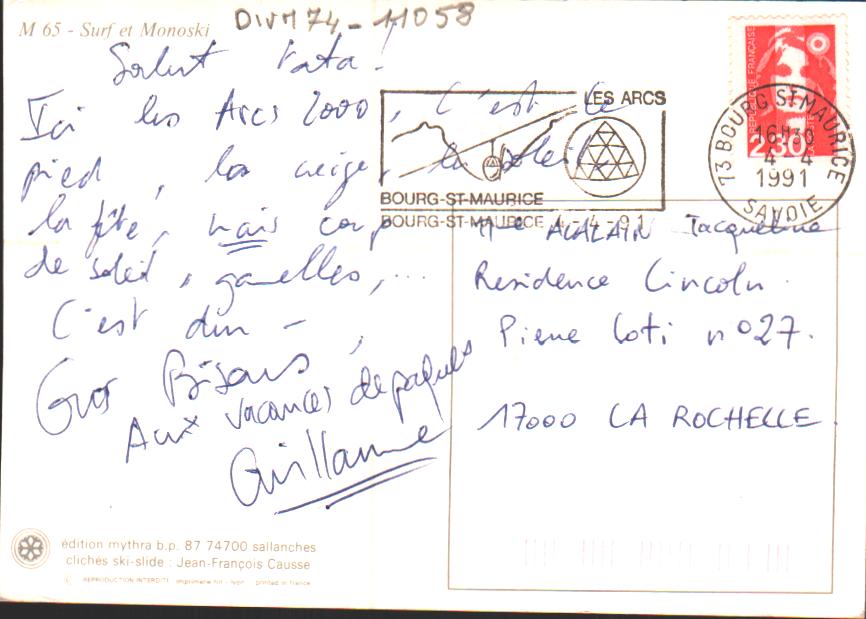 M 65 - Surf et Monoski
DIVM74-11058
Salut tata!
Ici les Arcs 2000, C'est le
pied, la neige, le soleil,
la fête, mais coup
de soleil, gamelles,...
C'est dur -
Gros Bisous,
Aux vacances de paques
Guillaume
LES ARCS
BOURG-ST-MAURICE
BOURG-ST-MAURICE 4-4-91
REPUBLIQUE FRANÇAISE
2,30
73 BOURG ST MAURICE
16H30
4-4
1991
SAVOIE
Mlle Jacqueline
Residence Lincoln.
Pierre Loti n°27.
17000 LA ROCHELLE.
édition mythra b.p. 87 74700 sallanches
clichés ski-slide : Jean-François Causse
REPRODUCTION INTERDITE imprimerie printed in france